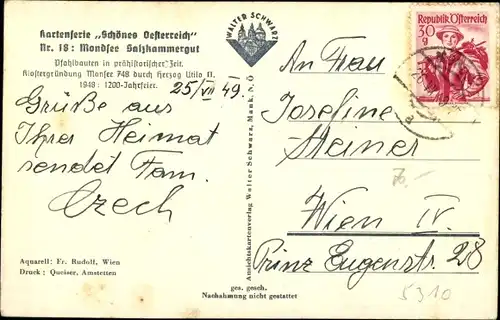 Kartenserie „Schönes Oesterreich"
Nr. 18: Mondsee Salzkammergut
Pfahlbauten in prähistorischer Zeit.
Klostergründung Mansee 748 durch Herzog Utilo II.
1948: 1200-Jahrfeier.
WALTER SCHWARZ
25/VII 49.
Grüße aus
Ihrer Heimat
sendet Fam.
Czech
Aquarell: Fr. Rudolf, Wien
Druck: Queiser, Amstetten
Ansichtskartenverlag Walter Schwarz, Mank, N. Ö.
ges. gesch.
Nachahmung nicht gestattet
Republik Österreich
30
g
An Frau
Josefine
Steiner
70.-
Wien IV.
Prinz Eugenstr. 28
5310